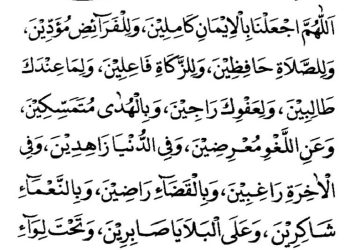 اَللّٰهُمَّ اجْعَلْنَا بِالْاِيْمَانِ كَامِلِيْنَ، وَلِلْفَرَآئِضِ مُؤَدِّيْنَ،
وَلِلصَّلَاةِ حَافِظِيْنَ، وَلِلزَّكَاةِ فَاعِلِيْنَ، وَلِمَا عِنْدَكَ
طَالِبِيْنَ، وَلِعَفْوِكَ رَاجِيْنَ، وَبِالْهُدٰى مُتَمَسِّكِيْنَ،
وَعَنِ اللَّغْوِ مُعْرِضِيْنَ، وَفِى الدُّنْيَا زَاهِدِيْنَ، وَفِى
الْاٰخِرَةِ رَاغِبِيْنَ، وَبِالْقَضَآءِ رَاضِيْنَ، وَبِالنَّعْمَآءِ
شَاكِرِيْنَ، وَعَلَى الْبَلَايَا صَابِرِيْنَ، وَتَحْتَ لِوَآءِ